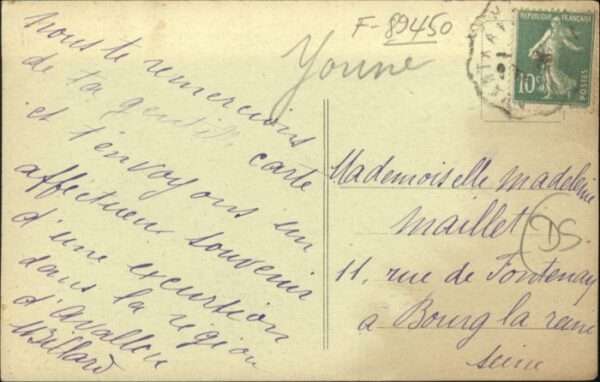 F-89450
Yonne
nous te remercions
de ta gentille carte
et t'envoyons un
affectueux souvenir
d'une excursion
dans la région
d'Avallon
Billard
REPUBLIQUE FRANÇAISE
10c
POSTES
Mademoiselle Madeleine
Maillet
DS
11, rue de Fontenay
a Bourg la reine
Seine